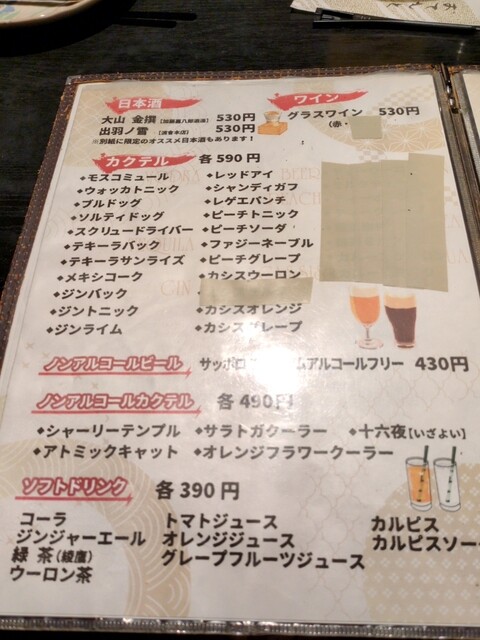 日本酒
大山 金撰【加藤嘉八郎酒造】 530円
出羽ノ雪【渡會本店】 530円
※別紙に限定のオススメ日本酒もあります!
ワイン
グラスワイン 530円
(赤・
カクテル 各590円
◆モスコミュール
◆ウォッカトニック
◆ブルドッグ
◆ソルティドッグ
◆スクリュードライバー
◆テキーラバック
◆テキーラサンライズ
◆メキシコーク
◆ジンバック
◆ジントニック
◆ジンライム
◆レッドアイ
◆シャンディガフ
◆レゲエパンチ
◆ピーチトニック
◆ピーチソーダ
◆ファジーネーブル
◆ピーチグレープ
◆カシスウーロン
◆カシスオレンジ
◆カシスグレープ
ノンアルコールビール サッポロ ムアルコールフリー 430円
ノンアルコールカクテル 各490円
◆シャーリーテンプル ◆サラトガクーラー ◆十六夜【いざよい】
◆アトミックキャット ◆オレンジフラワークーラー
ソフトドリンク 各390円
コーラ
ジンジャーエール
緑茶(綾鷹)
ウーロン茶
トマトジュース
オレンジジュース
グレープフルーツジュース
カルピス
カルピスソー